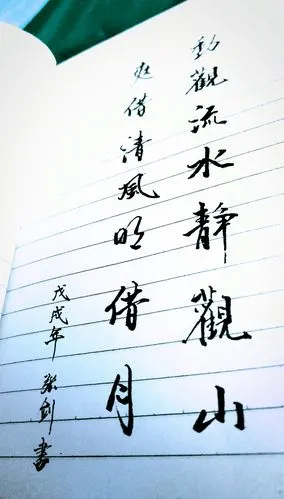 動觀流水靜觀山
爽借清風明借月
戊戌年 張劍書